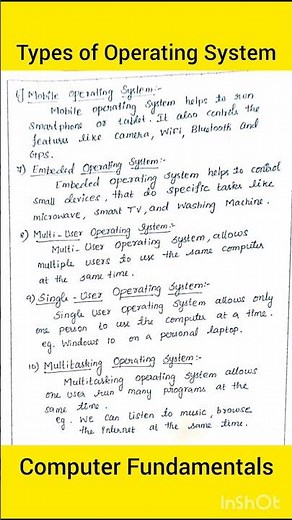 Types of Operating System
6) Mobile Operating System:-
Mobile operating system helps to run
smartphone or tablet. It also controls the
features like camera, WiFi, Bluetooth and
GPS.
7) Embeded Operating System:-
Embeded operating system helps to control
small devices, that do specific tasks like
microwave, smart TV, and Washing Machine.
8) Multi-User Operating System:-
Multi-User operating system, allows
multiple users to use the same computer
at the same time.
9) Single-User Operating System:-
Single User operating system allows only
one person to use the computer at a time.
eg. Windows 10 on a personal laptop.
10) Multitasking Operating System:-
Multitasking operating system allows
one user run many programs at the
same time.
eg. We can listen to music, browse
the Internet at the same time.
Computer Fundamentals
InShOt